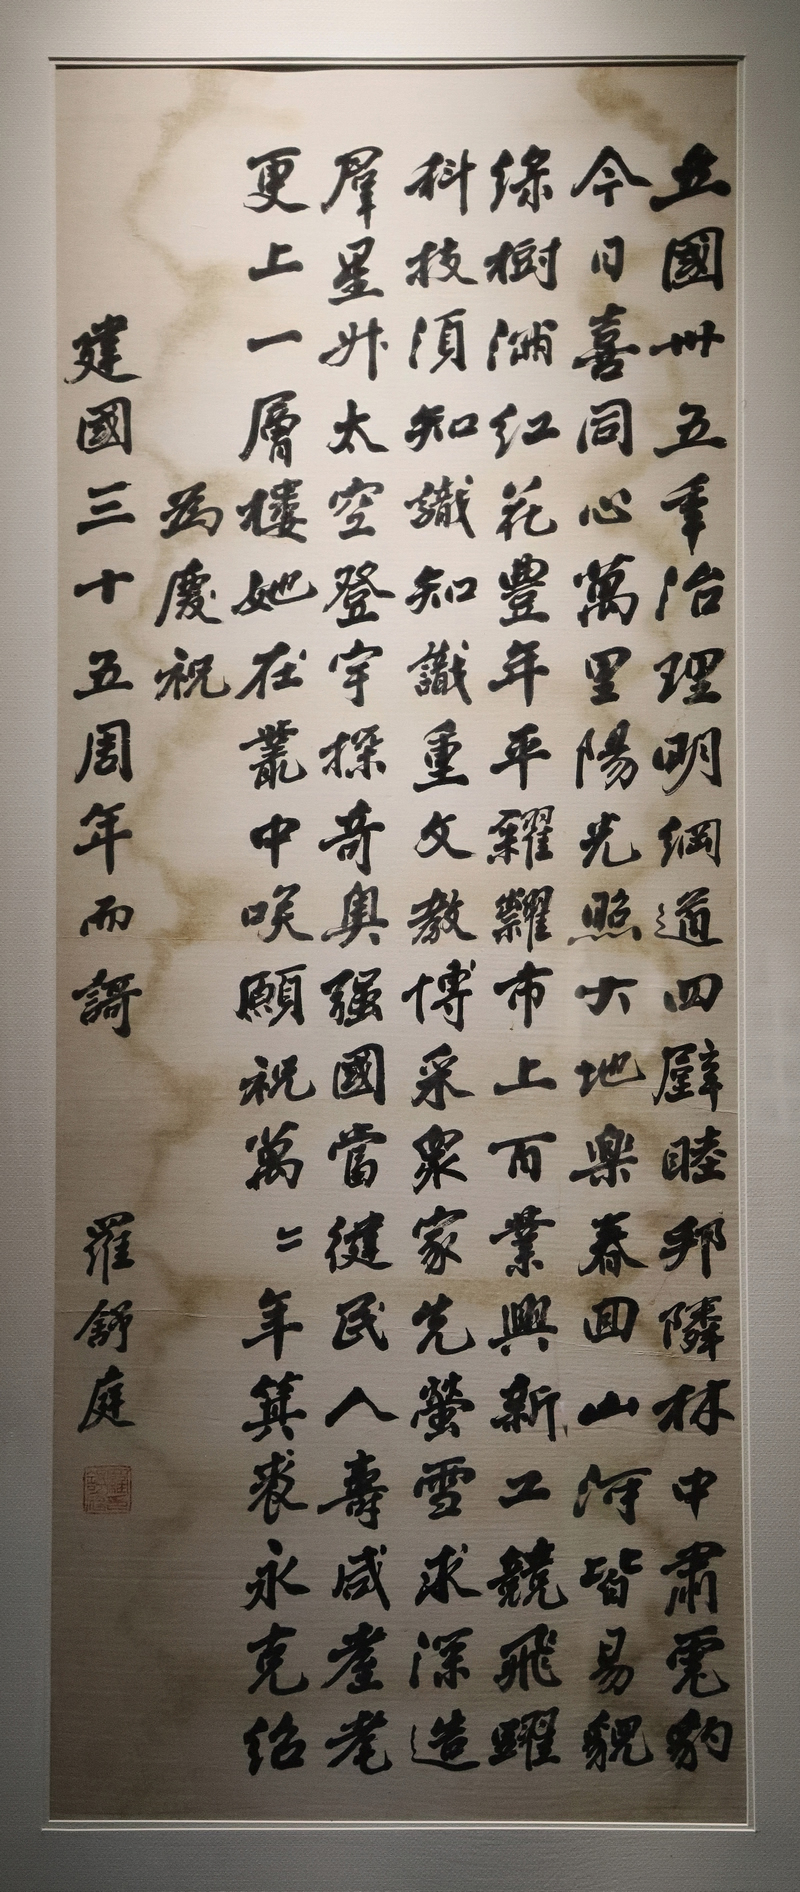 立國卅五年治理明綱道四壁睦邦隣林中肅電豹
今日喜同心萬里陽光照大地樂春回山河皆易貌
綠樹滿紅花豐年平糶糶市上百業興新工競飛躍
科技須知識知識重文教博采衆家先螢雪求深造
羣星昇太空登宇探奇奧强國當健民人壽咸耋耄
更上一層樓她在叢中咲願祝萬〻年箕裘永克紹
為慶祝
建國三十五周年而謌 羅舒庭